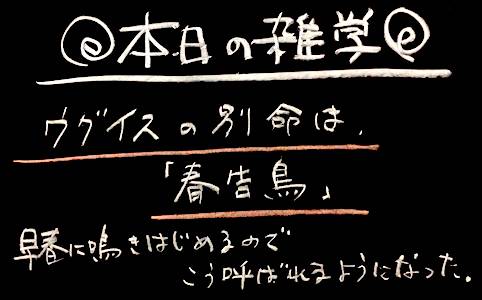 @本日の雑学@
ウグイスの別命は、
「春告鳥」
早春に鳴きはじめるので
こう呼ばれるようになった。